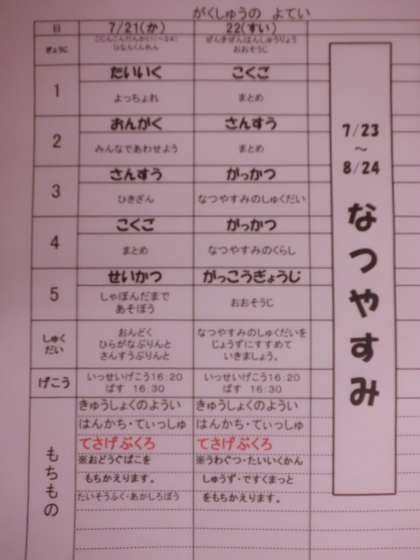 がくしゅうの よてい
日 7/21(か) 22(すい)
ぎょうじ
ひなんくんれん おおそうじ
1 たいいく こくご
よっちょれ まとめ
2 おんがく さんすう
みんなであわせよう まとめ
3 さんすう がっかつ
ひきざん なつやすみのしゅくだい
4 こくご がっかつ
まとめ なつやすみのくらし
5 せいかつ がっこうぎょうじ
しゃぼんだまで
あそぼう おおそうじ
しゅくだい
おんどく なつやすみのしゅくだいを
ひらがなぷりんと じょうずにすすめて
さんすうぷりんと いきましょう。
げこう いっせいげこう16:20 いっせいげこう16:20
ばす 16:30 ばす 16:30
もちもの
きゅうしょくのようい きゅうしょくのようい
はんかち・てぃっしゅ はんかち・てぃっしゅ
てさげぶくろ てさげぶくろ
※おどうぐばこを ※うわぐつ・たいいくかん
もちかえります。 しゅうず・ですくまっと
たいそうふく・あかしろぼう をもちかえります。
7/23
～
8/24
なつやすみ